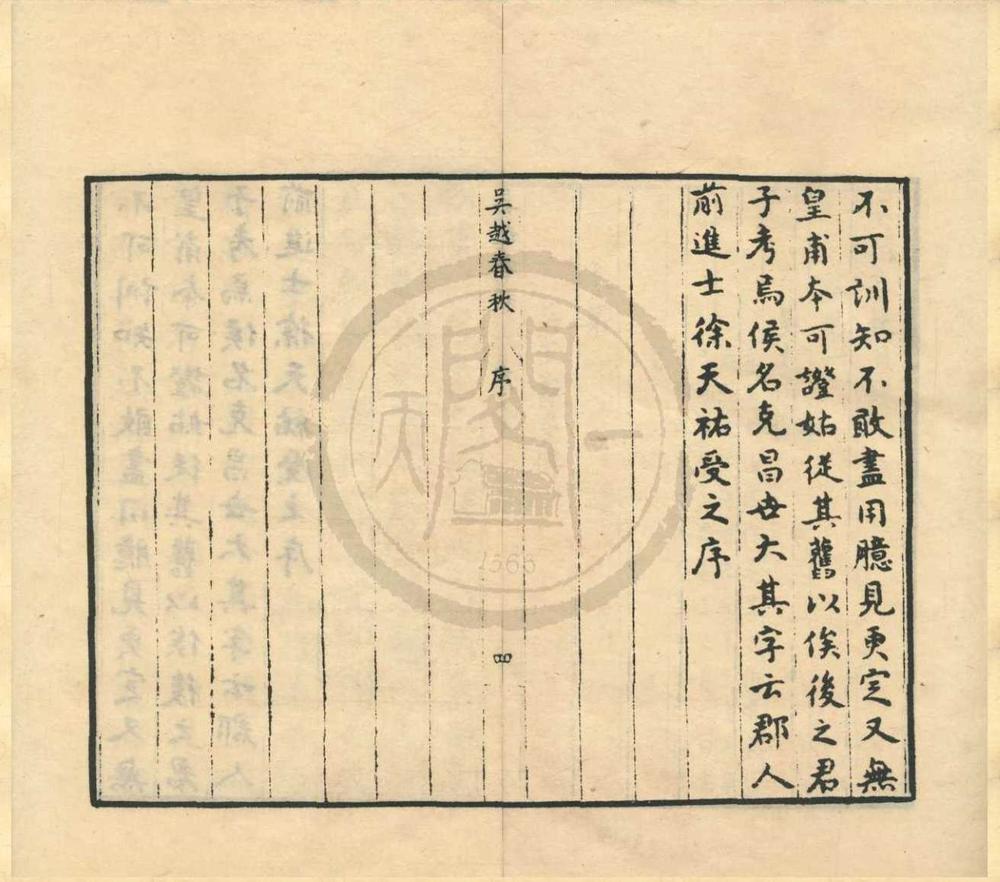 不可訓知不敢盡用臆見更定又無
皇甫本可證姑從其舊以俟後之君
子考焉侯名克昌世大其字云郡人
前進士徐天祜受之序
吳越春秋 序
四
天一閣
1566